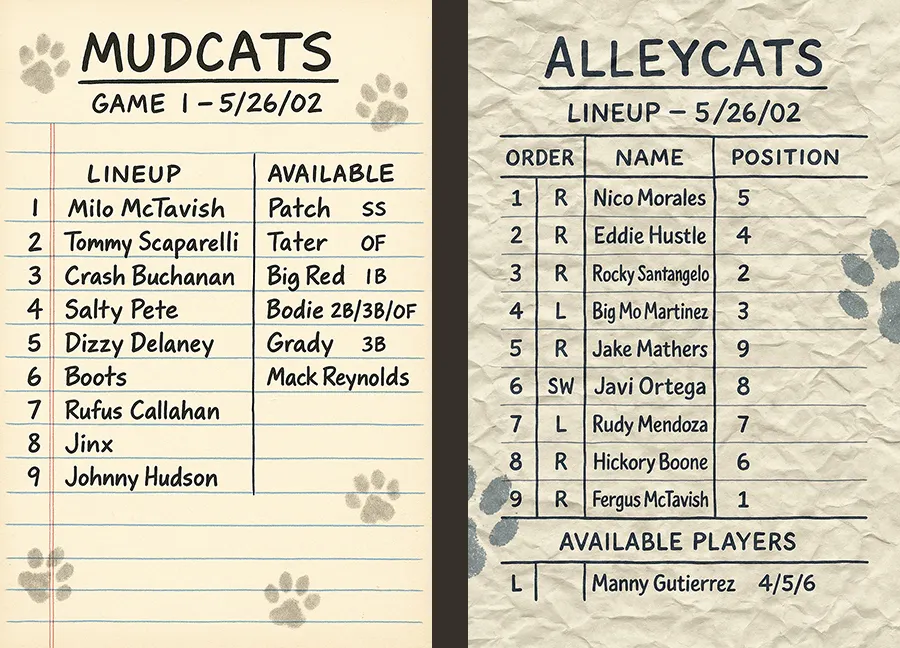 MUDCATS
GAME 1 – 5/26/02
LINEUP AVAILABLE
1 Milo McTavish Patch SS
2 Tommy Scaparelli Tater OF
3 Crash Buchanan Big Red 1B
4 Salty Pete Bodie 2B/3B/OF
5 Dizzy Delaney Grady 3B
6 Boots Mack Reynolds
7 Rufus Callahan
8 Jinx
9 Johnny Hudson
ALLEYCATS
LINEUP – 5/26/02
ORDER NAME POSITION
1 R Nico Morales 5
2 R Eddie Hustle 4
3 R Rocky Santangelo 2
4 L Big Mo Martinez 3
5 R Jake Mathers 9
6 SW Javi Ortega 8
7 L Rudy Mendoza 7
8 R Hickory Boone 6
9 R Fergus McTavish 1
AVAILABLE PLAYERS
L Manny Gutierrez 4/5/6